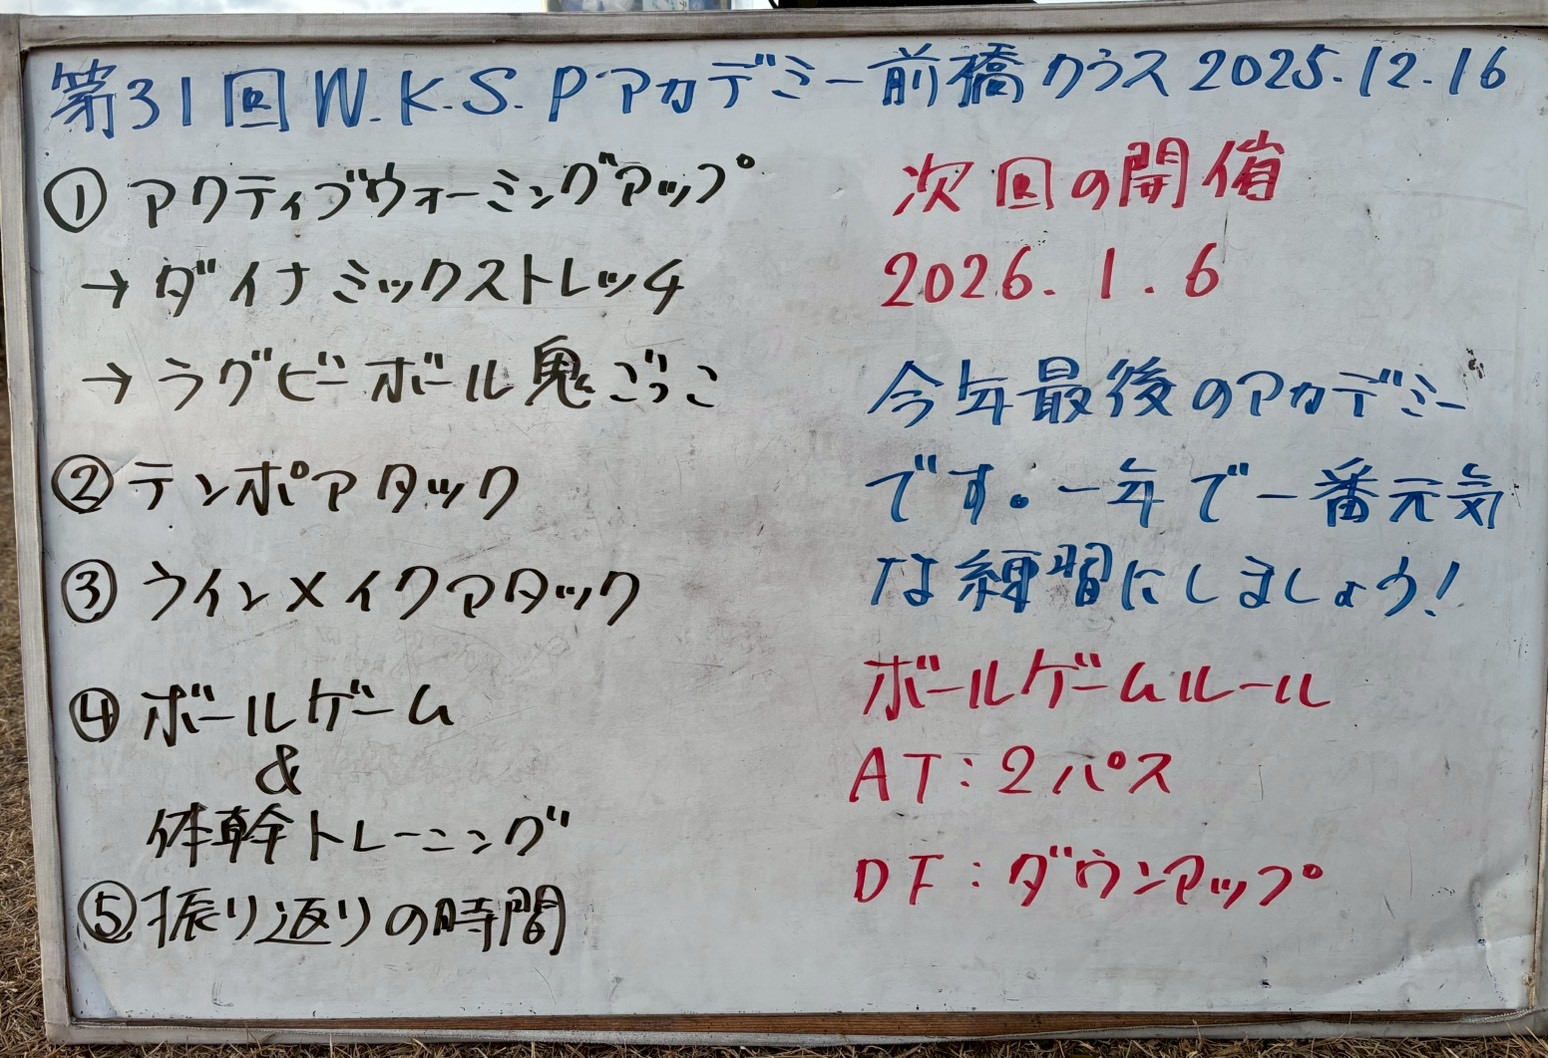 第31回 W.K.S.Pアカデミー前橋クラス 2025.12.16
① アクティブウォーミングアップ
→ ダイナミックストレッチ
→ ラグビーボール鬼ごっこ
② テンポアタック
③ ラインメイクアタック
④ ボールゲーム
&
体幹トレーニング
⑤ 振り返りの時間
次回の開催
2026.1.6
今年最後のアカデミー
です。一年で一番元気
な練習にしましょう!
ボールゲームルール
AT:2パス
DF:ダウンアップ